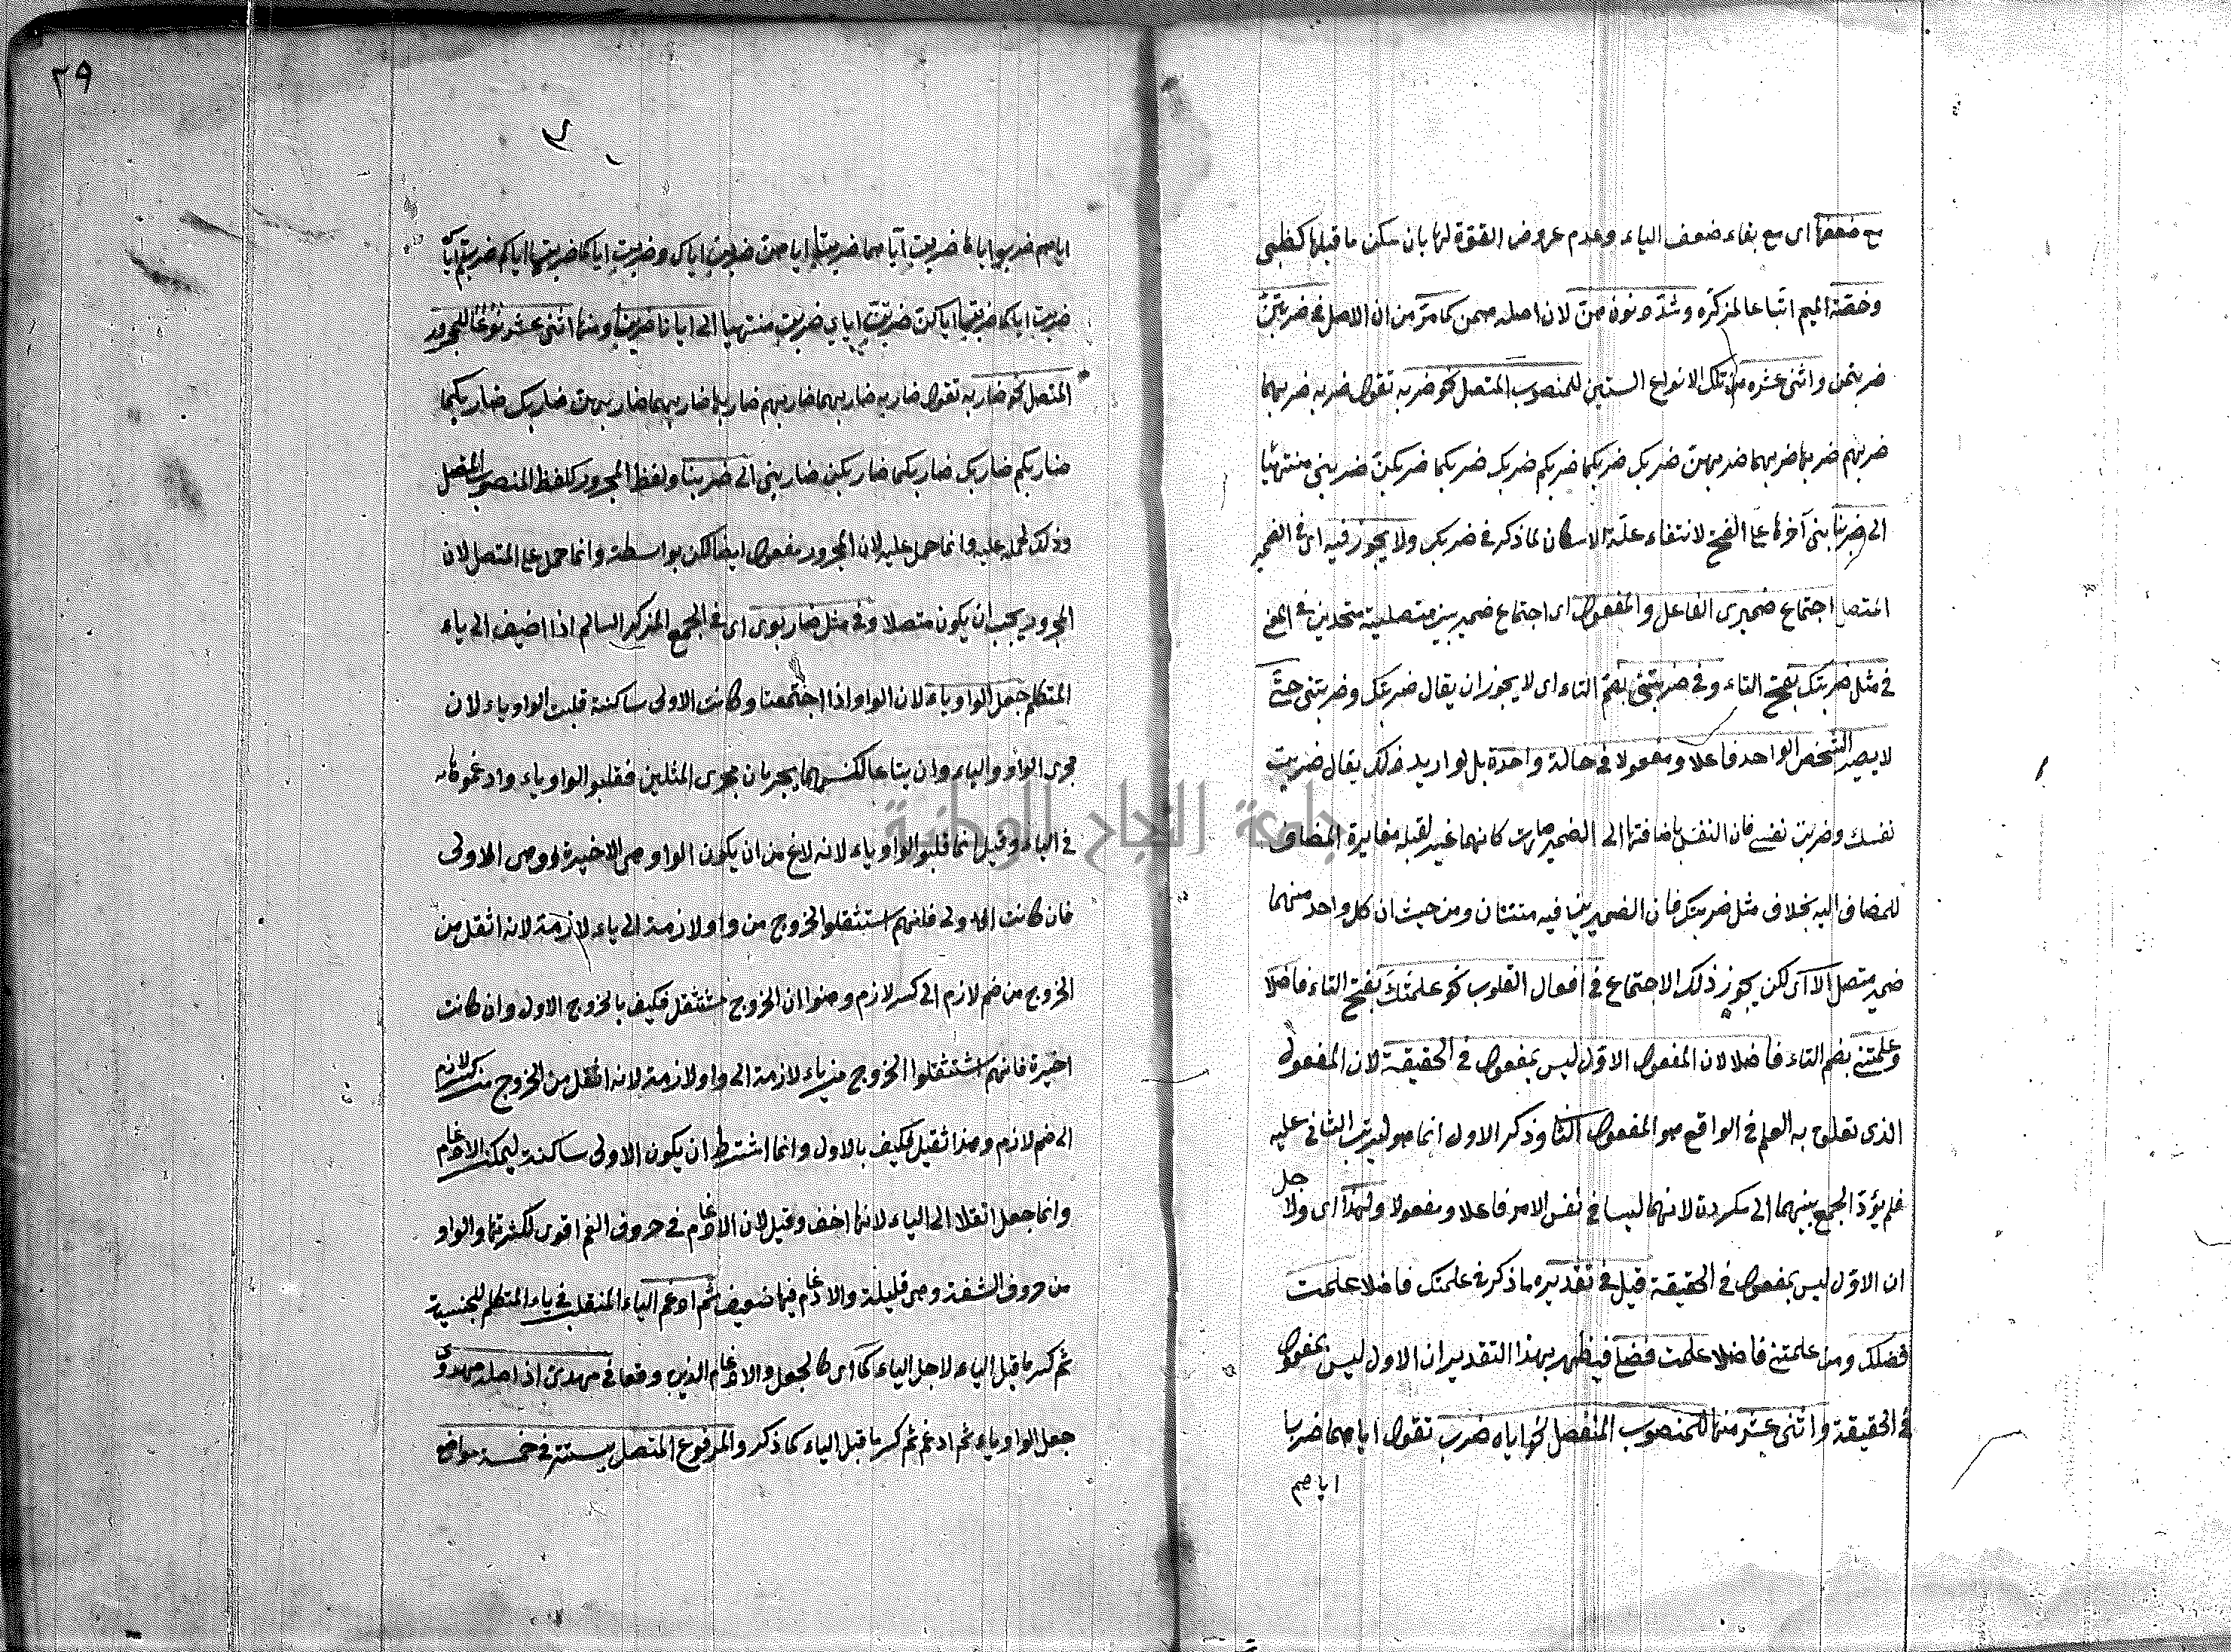 مع ضعفها اى مع بقاء ضعف الياء وعدم عروض القوة لها بان سكن ما قبلها كظبى
وضمّة الميم اتباعا لمذكّره وشدّد نون هنّ لان اصله همن كما مرّ من ان الاصل فى ضربتنّ
ضربتمن واثنى عشره من تلك الانواع الستين للمنصوب المتصل نحو ضربه تقول ضربه ضربهما
ضربهم ضربها ضربهما ضربهن ضربك ضربكما ضربكم ضربك ضربكما ضربكنّ ضربنى منتهيا
الى ضربنا بنى آخرها على الفتح لانتفاء علّة الاسكان لما ذكر فى ضربكـ ولا يجوز فيه اى فى الضمير
المتصل اجتماع ضميرى الفاعل والمفعول اى اجتماع ضميرين متصلين متحدين فى المعنى
فى مثل ضربتك بفتح التاء وفى ضربتنى بضم التاء اى لا يجوز ان يقال ضربتك وضربتنى حتّى
لا يصير الشخص الواحد فاعلا ومفعولا فى حالة واحدة بل لو اريد ذلك يقال ضربت
نفسك وضربت نفسى فان النفس باضافتها الى الضمير صارت كانها غير لقبله مغايرة المضاف
للمضاف اليه بخلاف مثل ضربتك فان الضميرين فيه متنتان ومن حيث ان كل واحد منهما
ضمير متصل الّا اى لكن يجوز ذلك الاجتماع فى افعال القلوب نحو علمتك بفتح التاء فاضلا
وعلمتنى بضم التاء فاضلا لان المفعول الاوّل ليس بمفعول فى الحقيقة لان المفعول
الذى تعلق به العلم فى الواقع هو المفعول الثانى وذكر الاول انما هو ليرتب الثانى عليه
فلم يؤد الجمع بينهما الى مكرره لانهما ليسا فى نفس الامر فاعلا ومفعولا ولهذا اى ولاجل
ان الاوّل ليس بمفعول فى الحقيقة قيل فى تقديره ما ذكر فى علمتك فاضلا علمت
فضلك ومن علمتنى فاضلا علمت فضلى فيظهر بهذا التقدير ان الاول ليس بمفعول
فى الحقيقة واثنى عشر منها للمنصوب المنفصل نحو اياه ضرب تقول اياهما ضربا
اياهم
٢٩
اياهم ضربوا اياها ضربت اياهما ضربتا اياهن ضربن اياك وضربت اياكما ضربتما اياكم ضربتم اياك
ضربت اياكما ضربتما اياكن ضربتنّ اياى ضربت منتهيا الى ايانا ضربنا ومنها اثنى عشر نوعا للمجرور
المتصل نحو ضاربه تقول ضاربه ضاربهما ضاربهم ضاربها ضاربهما ضاربهن ضاربك ضاربكما
ضاربكم ضاربك ضاربكما ضاربكن ضاربنى الى ضربنا ولفظ المجرور كلفظ المنصوب المتصل
وذلك لحمله عليه وانما حمل عليه لان المجرور مفعول ايضا لكن بواسطة وانما حمل على المتصل لان
المجرور يجب ان يكون متصلا وفى مثل ضاربوى اى فى الجمع المذكر السالم اذا اضيف الى ياء
المتكلم جعل الواو ياء لان الواو اذا اجتمعتا وكانت الاولى ساكنة قلبت الواو ياء لان
مجرى الواو والياء وان تباعا لكنهما يجريان مجرى المثلين فقلبوا الواو ياء وادغموها
فى الياء وقيل انما قلبوا الواو ياء لانه لا يخ من ان يكون الواو هى الاخيرة او هى الاولى
فان كانت الاولى فلانهم استثقلوا الخروج من واو لازمة الى ياء لازمة لانه اثقل من
الخروج من ضم لازم الى كسر لازم وهنوا ان الخروج مستثقل فكيف بالخروج الاول وان كانت
اخيرة فانهم استثقلوا الخروج من ياء لازمة الى واو لازمة لانه اثقل من الخروج من كسر لازم
الى ضم لازم وهذا ثقيل فكيف بالاول وانما اشترط ان يكون الاولى ساكنة ليمكن الادغام
وانما جعل انقلا الى الياء لانها اخف وقيل لان الادغام فى حروف الفم اقوى لكثرتها والواو
من حروف الشفة وهى قليلة والادغام فيها ضعيف ثم ادغم الياء المنقلب فى ياء المتكلم للجنسية
ثم كسر ما قبل الياء لاجل الياء كما اى كالجعل والادغام الذين وقعا فى مهدىّ اذ اصله مهدوى
جعل الواو ياء ثم ادغم ثم كسر ما قبل الياء كما ذكر والمرفوع المتصل يستتر فى خمسة مواضع
جامعة النجاح الوطنية